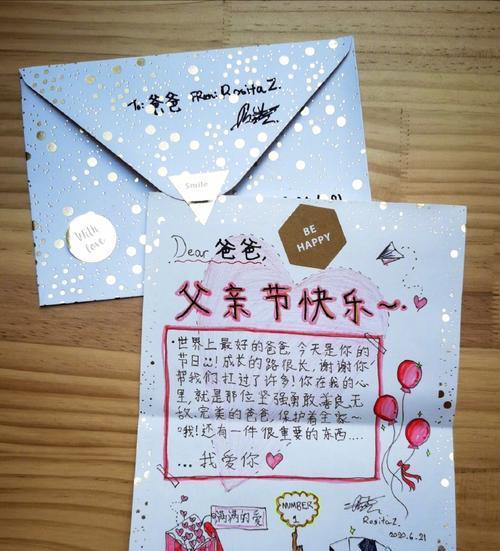 To: 爸爸 From: Rosita Z.
Smile
With love
6.21
Dear 爸爸,
BE
HAPPY
父亲节快乐~
·世界上最好的爸爸,今天是你的
节日!!成长的路很长,谢谢你
帮我们扛过了许多!你在我的心
里,就是那位坚强勇敢善良无
敌完美的爸爸,保护着全家~
哦!还有一件很重要的东西....
...我爱你♡
满满的爱
NUMBER
1
Rosita Z.
2020.6.21